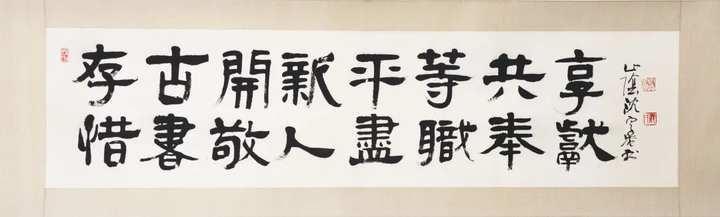 存古開新平等共享
惜書敬人盡職奉獻
山陰沈定庵書